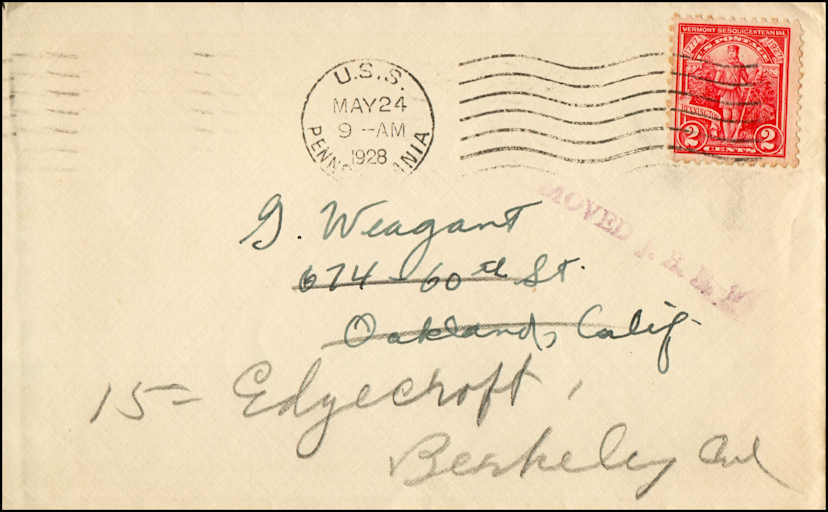 VERMONT SESQUICENTENNIAL
1777 1927
U.S. POSTAGE
BENNINGTON
2 2
CENTS
U.S.S.
MAY 24
9 -AM
1928
PENNSYLVANIA
MOVED
G. Weagant
674 - 60th St.
Oakland, Calif
15 = Edgecroft,
Berkeley Cal